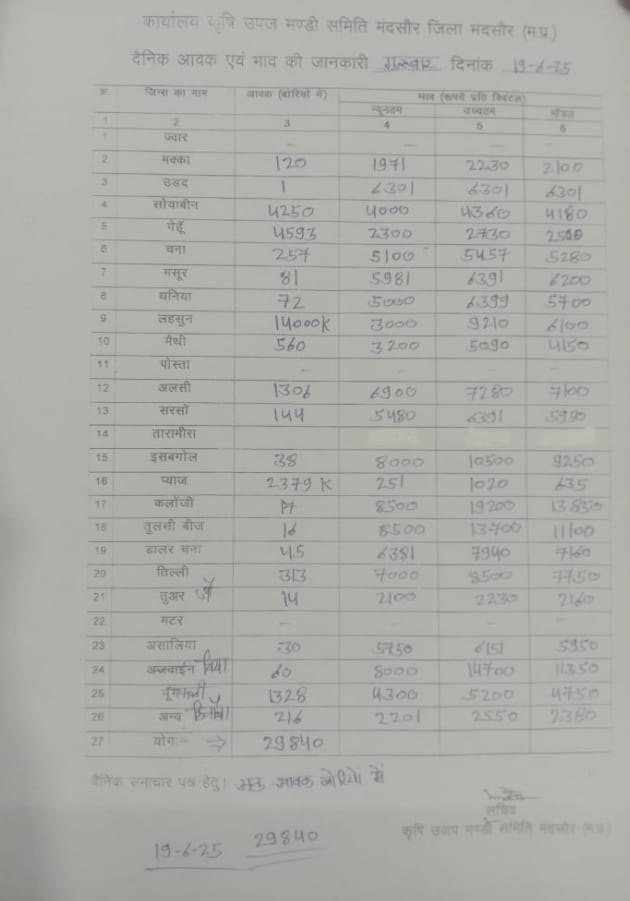 कार्यालय कृषि उपज मण्डी समिति मंदसौर जिला मंदसौर (म.प्र.)
दैनिक आवक एवं भाव की जानकारी गुरुवार दिनांक 19-6-25
क्र. जिन्स का नाम आवक (बोरियों में) भाव (रूपयें प्रति क्विंटल)
न्यूनतम उच्चतम मॉडल
1 2 3 4 5 6
1 ज्वार – – –
2 मक्का 120 1971 2230 2100
3 उड़द 1 6301 6301 6301
4 सोयाबीन 4250 4000 4360 4180
5 गेंहूँ 4593 2300 2730
6 चना 257 5100 5457 5280
7 मसूर 81 5981 6391 6200
8 धनिया 72 5000 6399 5700
9 लहसुन 14000K 3000 9210 6100
10 मैथी 560 3200 5090 4150
11 पोस्ता – – –
12 अलसी 1306 6900 7280 7100
13 सरसों 144 5480 6391
14 तारामीरा
15 इसबगोल 38 8000 10500 9250
16 प्याज 2379 K 251 1020 635
17 कलोंजी 8500 19200 13850
18 तुलसी बीज 16 8500 13700 11100
19 डालर चना 45 6381 7940 7160
20 तिल्ली 313 7000 8500 7750
21 तुअर जौ 14 2100 2230 2160
22 मटर – – –
23 असालिया 30 5750 6151 5950
24 अजवाईन 60 8000 14700 11350
25 1328 4300 5200 4750
26 अन्य 216 2201 2550 2380
27 योग – ⇒ 29840
दैनिक समाचार पत्र हेतु। आवक बोरियों में
सचिव
कृषि उपज मण्डी समिति मंदसौर (म.प्र.)
19-6-25 29840